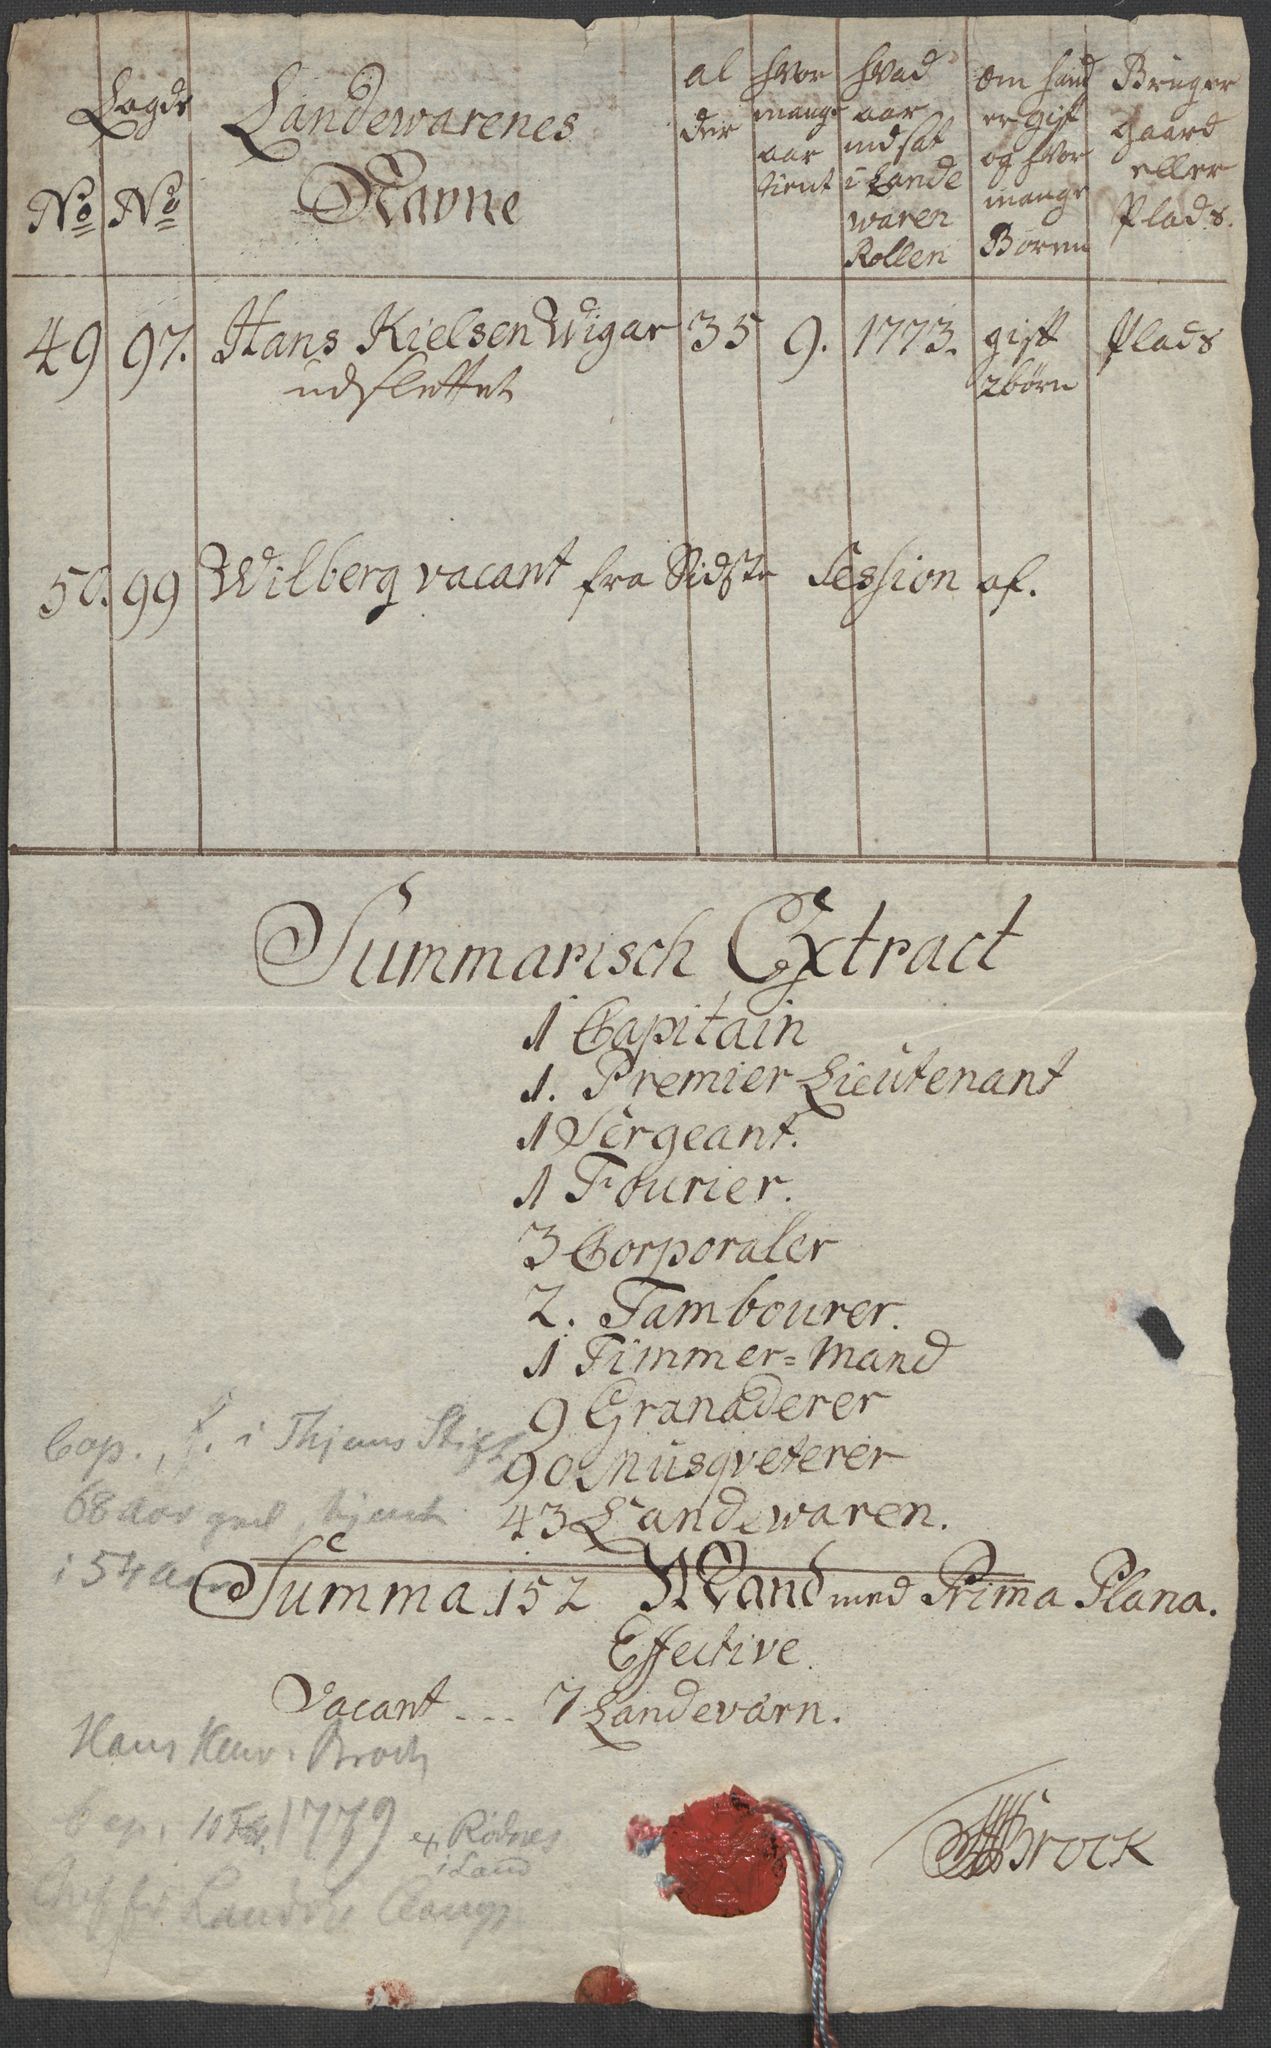 No
Lagds No
Landewarenes Navne
al der
hvor mange aar tient
hvad aar indsat i Lande waren Rollen
om hand er gift og hvor mange Boren
Bruger gaard eller Plads.
49 97. Hans Kielsen Wigar 35 9. 1773. gift 2 börn Plads
udslettet
50. 99 Wilberg vacant fra Sidste Session af.
Summarisch Extract
1 Capitain
1. Premier Lieutenant
1 Sergeant.
1 Fourier.
3 Corporaler
2. Tambourer.
1 Timmer=Mand
9 Granaderer
90 Musqveterer
43 Landewaren.
Summa 152 Mand med Prima Plana.
Effective.
Vacant ... 7 Landevärn.
HHBrock
Cap., f. i Thjems Stift
68 Aar gml, tjent
i 54 Aar
Hans Henr. Broch
Cap. 10 1779
Rödnes
i Land
Chef for Landv